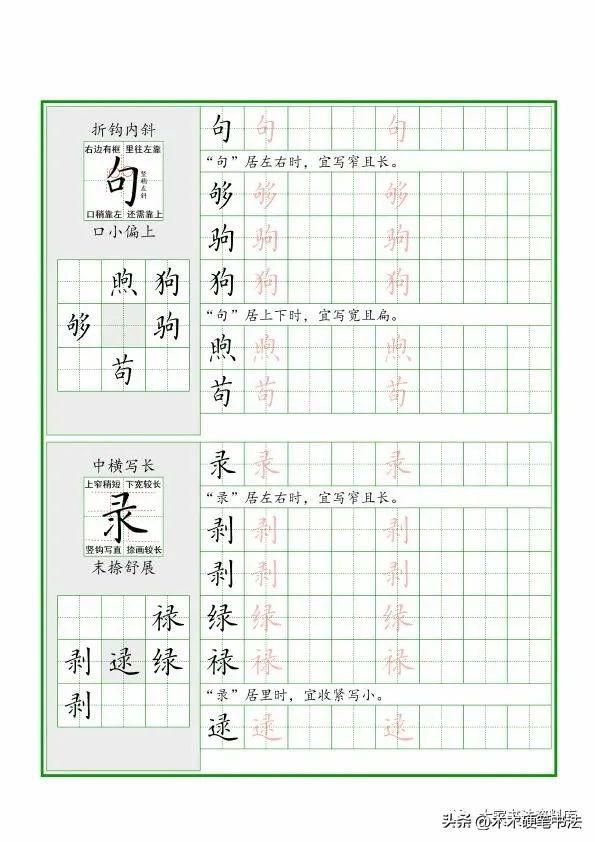 折钩内斜
右边有框 里往左靠
句
竖稍左斜
口稍靠左 还需靠上
口小偏上
煦 狗
够 驹
苟
句 句 句
“句”居左右时，宜写窄且长。
够 够 够
驹 驹 驹
狗 狗 狗
“句”居上下时，宜写宽且扁。
煦 煦 煦
苟 苟 苟
中横写长
上窄稍短 下宽较长
录
竖钩写直 捺画较长
末捺舒展
禄
剥 逯 绿
剥
录 录 录
“录”居左右时，宜写窄且长。
剥 剥 剥
剥 剥 剥
绿 绿 绿
禄 禄 禄
“录”居里时，宜收紧写小。
逯 逯 逯
头条 @木木硬笔书法